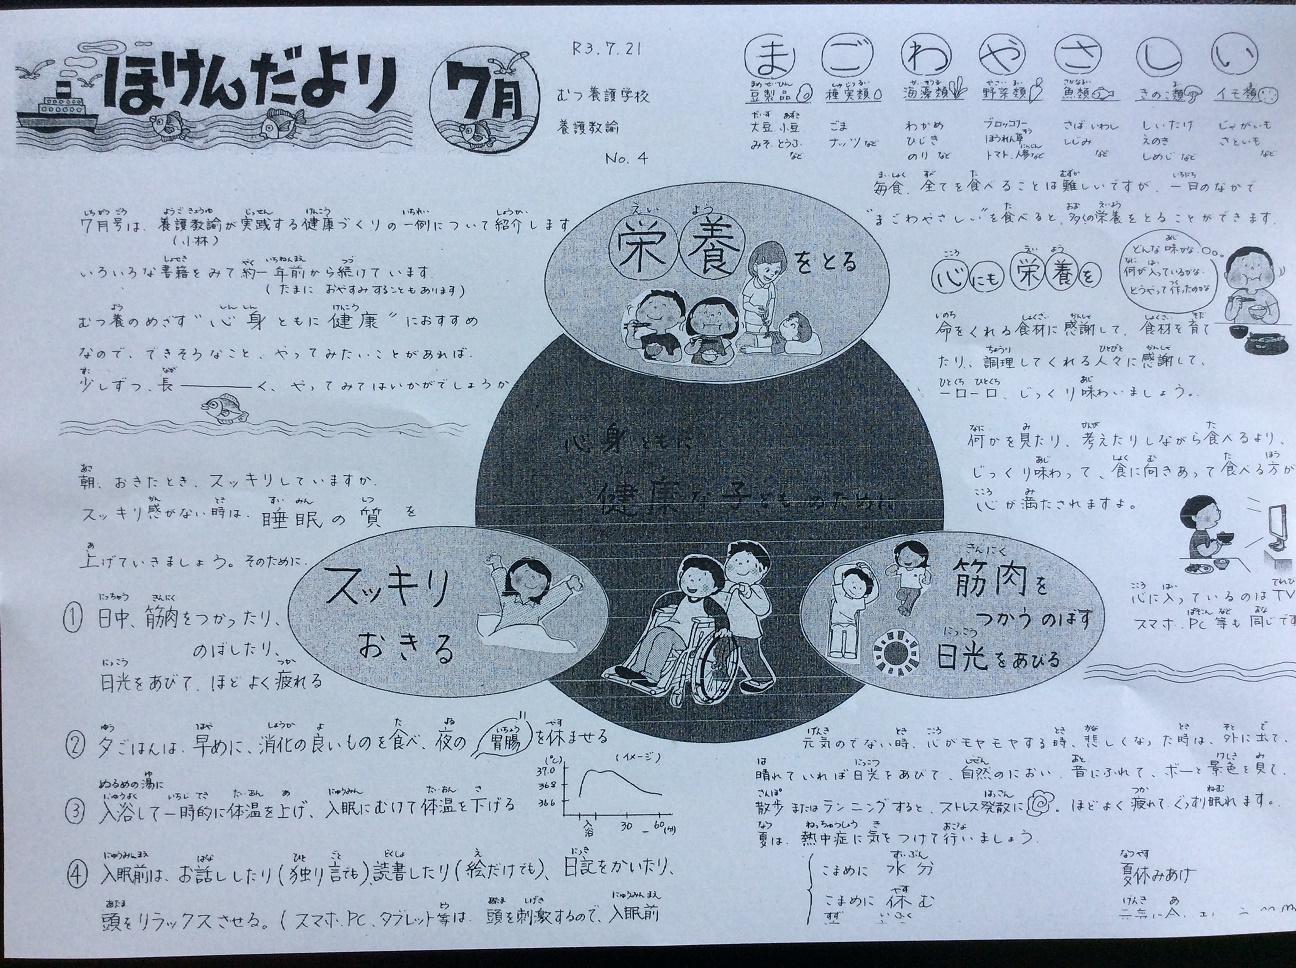 ほけんだより
7月
R3.7.21
むつ養護学校
養護教諭
No.4
7月号は、養護教諭が実践する健康づくりの一例について紹介します
(小林)
いろいろな書籍をみて約一年前から続けています。
(たまに おやすみすることもあります)
むつ養のめざす"心身ともに健康"におすすめ
なので、できそうなこと、やってみたいことがあれば、
少しずつ、長————く、やってみてはいかがでしょうか
朝、おきたとき、スッキリしていますか。
スッキリ感がない時は、睡眠の質を
上げていきましょう。そのために、
① 日中、筋肉をつかったり、
のばしたり、
日光をあびて、ほどよく疲れる
② 夕ごはんは、早めに、消化の良いものを食べ、夜の胃腸を休ませる
ぬるめの湯に
③ 入浴して一時的に体温を上げ、入眠にむけて体温を下げる
(イメージ)
(℃)
37.0
36.8
36.6
入浴
30
60(分)
④ 入眠前は、お話ししたり(独り言でも)、読書したり(絵だけでも)、日記をかいたり、
頭をリラックスさせる。(スマホ、PC、タブレット等は、頭を刺激するので、入眠前
栄養をとる
心身ともに
健康な子どものために
スッキリ
おきる
筋肉を
つかう のばす
日光をあびる
ま ご わ や さ し い
豆製品 種実類 海藻類 野菜類 魚類 きのこ類 イモ類
大豆 小豆 ごま わかめ ブロッコリー さば いわし しいたけ じゃがいも
みそ、とうふ ナッツ など ひじき ほうれん草 しじみ えのき さといも
など のり など トマト、人参など など しめじ など など
毎食、全てを食べることは難しいですが、一日のなかで
"まごわやさしい"を食べると、多くの栄養をとることができます。
心にも栄養を
どんな味かな
何が入っているかな
どうやって作ったのかな
命をくれる食材に感謝して、食材を育て
たり、調理してくれる人々に感謝して、
一口一口、じっくり味わいましょう。
何かを見たり、考えたりしながら食べるより、
じっくり味わって、食に向きあって食べる方が
心が満たされますよ。
心に入っているのはTV
スマホ、PC等も同じです
元気のでない時、心がモヤモヤする時、悲しくなった時は、外に出て、
晴れていれば日光をあびて、自然のにおい、音にふれて、ボーと景色を見て、
散歩またはランニングすると、ストレス発散に。ほどよく疲れて、ぐっすり眠れます。
夏は、熱中症に気をつけて行いましょう。
こまめに 水分
こまめに 休む
夏休みあけ